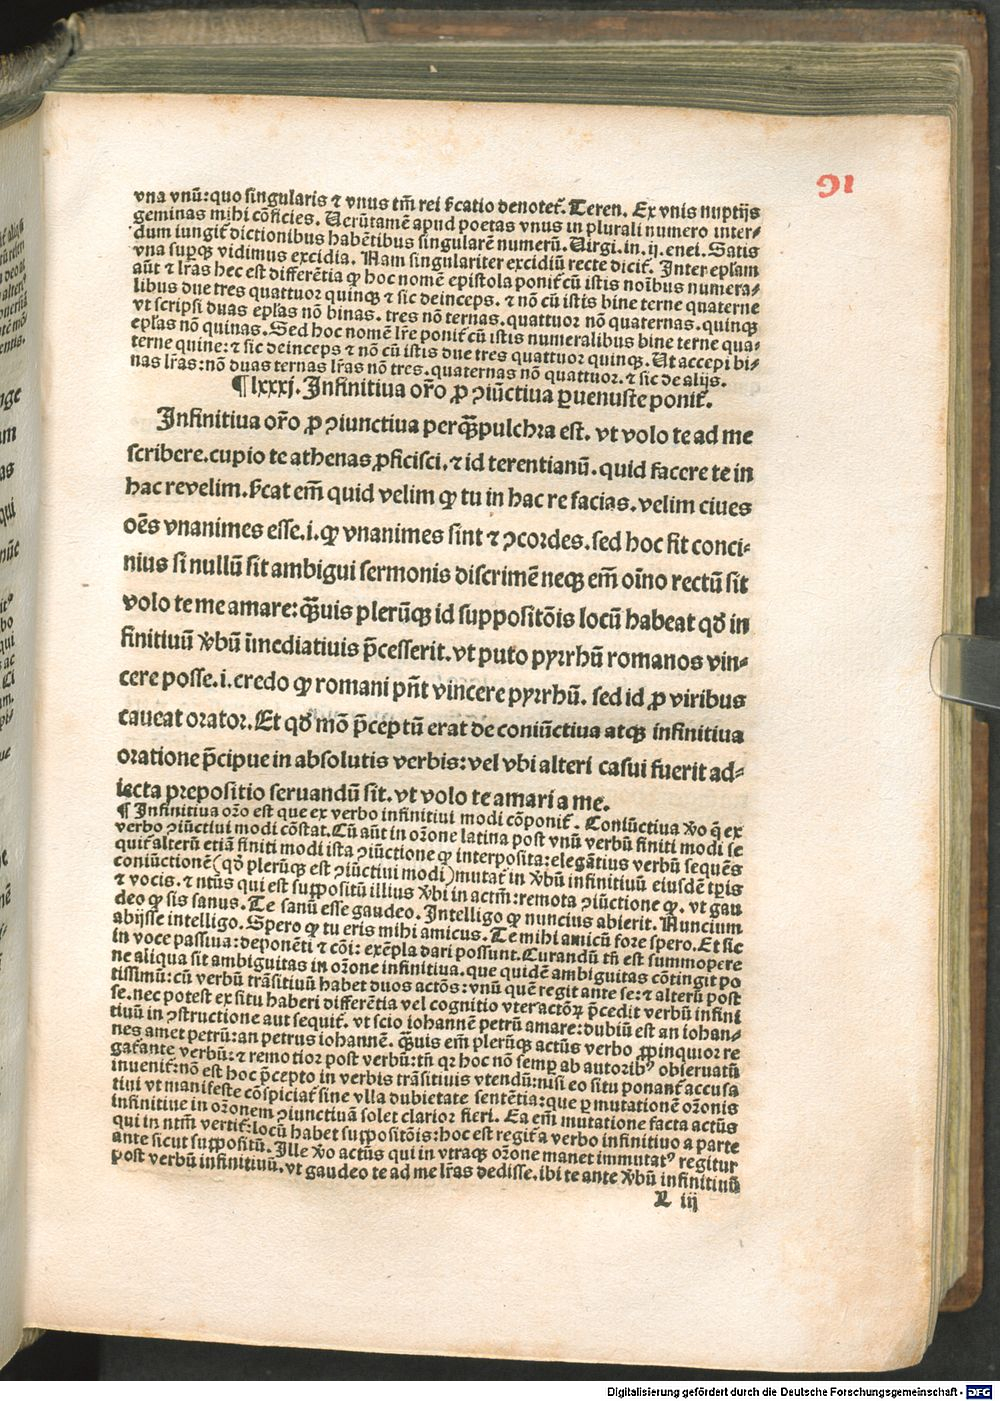 91
vna vnū: quo singularis ⁊ vnus tm̄ rei ſcatio denotet̄. Teren. Ex vnis nuptijs
geminas mihi cōficies. Uerūtamē apud poetas vnus in plurali numero inter-
dum iungit̄ dictionibus habētibus singularē numerū. Uirgi. in. ij. enei. Satis
vna supꝙ vidimus excidia. Nam singulariter excidiū recte dicit̄. Inter epl̄am
aūt ⁊ lr̄as hec est differētia ꝙ hoc nomē epistola ponit̄ cū istis noībus numera-
libus due tres quattuor quinqꝫ ⁊ sic deinceps. ⁊ nō cū istis bine terne quaterne
vt scripsi duas epl̄as nō binas. tres nō ternas. quattuor nō quaternas. quinqꝫ
epl̄as nō quinas. Sed hoc nomē lr̄e ponit̄ cū istis numeralibus bine terne qua-
terne quine: ⁊ sic deinceps ⁊ nō cū istis due tres quattuor quinqꝫ. Ut accepi bi-
nas lr̄as: nō duas ternas lr̄as nō tres. quaternas nō quattuor. ⁊ sic de alijs.
¶ lxxxj. Infinitiua or̄o ꝓ ꝯiūctiua ꝑuenuste ponit̄.
Infinitiua or̄o ꝓ ꝯiunctiua perqꝫpulchra est. vt volo te ad me
scribere. cupio te athenas ꝓficisci. ⁊ id terentianū. quid facere te in
hac re velim. ſcat em̄ quid velim ꝙ tu in hac re facias. velim ciues
oēs vnanimes esse. i. ꝙ vnanimes sint ⁊ ꝯcordes. sed hoc fit conci-
nius si nullū sit ambigui sermonis discrimē neqꝫ em̄ oīno rectū sit
volo te me amare: qꝫuis plerūqꝫ id suppositōis locū habeat qđ in
finitiuū v̄bū īmediatiuis p̄cesserit. vt puto pyrrhū romanos vin-
cere posse. i. credo ꝙ romani pn̄t vincere pyrrhū. sed id ꝓ viribus
caueat orator. Et qđ mō p̄ceptū erat de coniūctiua atqꝫ infinitiua
oratione p̄cipue in absolutis verbis: vel vbi alteri casui fuerit ad-
iecta prepositio seruandū sit. vt volo te amari a me.
¶ Infinitiua or̄o est que ex verbo infinitiui modi cōponit̄. Coniūctiua v̄o q̄ ex
verbo ꝯiūctiui modi cōstat. Cū aūt in or̄one latina post vnū verbū finiti modi se
quit̄ alterū etiā finiti modi ista ꝯiūctione ꝙ interposita: elegātius verbū sequēs
coniūctionē (qđ plerūqꝫ est ꝯiūctiui modi) mutat̄ in v̄bū infinitiuū eiusdē tp̄is
⁊ vocis. ⁊ nt̄us qui est suppositū illius v̄bi in actm̄: remota ꝯiūctione ꝙ. vt gau
deo ꝙ sis sanus. Te sanū esse gaudeo. Intelligo ꝙ nuncius abierit. Nuncium
abijsse intelligo. Spero ꝙ tu eris mihi amicus. Te mihi amicū fore spero. Et sic
in voce passiua: deponēti ⁊ cōi: exēpla dari possunt. Curandū tn̄ est summopere
ne aliqua sit ambiguitas in or̄one infinitiua. que quidē ambiguitas cōtingit po
tissimū: cū verbū trāsitiuū habet duos actōs: vnū quē regit ante se: ⁊ alterū post
se. nec potest ex situ haberi differētia vel cognitio vter actōꝝ p̄cedit verbū infini
tiuū in ꝯstructione aut sequit̄. vt scio iohannē petrū amare: dubiū est an iohan-
nes amet petrū: an petrus iohannē. Qꝫuis em̄ plerūqꝫ actūs verbo ꝓpinquior re
gat̄ ante verbū: ⁊ remotior post verbū: tn̄ qꝛ hoc nō semꝑ ab autoribꝰ obseruatū
inuenit̄: nō est hoc p̄cepto in verbis trāsitiuis vtendū: nisi eo situ ponant̄ accusa
tiui vt manifeste cōspiciat̄ sine vlla dubietate sentētia: que ꝑ mutationē or̄onis
infinitiue in or̄onem ꝯiunctiuā solet clarior fieri. Ea em̄ mutatione facta actūs
qui in ntm̄ vertit̄: locū habet suppositōis: hoc est regit̄ a verbo infinitiuo a parte
ante sicut suppositū. Ille v̄o actūs qui in vtraqꝫ or̄one manet immutatꝰ regitur
post verbū infinitiuū. vt gaudeo te ad me lr̄as dedisse. ibi te ante v̄bū infinitiuū
L iij
Digitalisierung gefördert durch die Deutsche Forschungsgemeinschaft - DFG